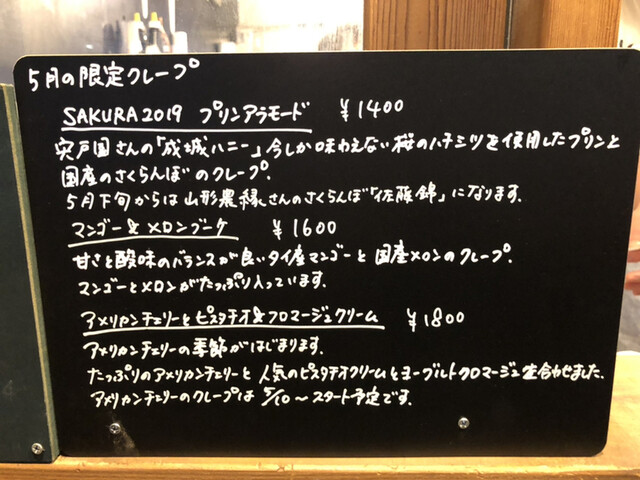 5月の限定クレープ
SAKURA2019 プリンアラモード ¥1400
宍戸園さんの「成城ハニー」今しか味わえない桜のハチミツを使用したプリンと
国産のさくらんぼのクレープ。
5月下旬からは山形農縁さんのさくらんぼ「佐藤錦」になります。
マンゴー&メロンブーケ ¥1600
甘さと酸味のバランスが良いタイ産マンゴーと国産メロンのクレープ。
マンゴーとメロンがたっぷり入っています。
アメリカンチェリーとピスタチオ&フロマージュクリーム ¥1800
アメリカンチェリーの季節がはじまります。
たっぷりのアメリカンチェリーと人気のピスタチオクリームとヨーグルトフロマージュを合わせました。
アメリカンチェリーのクレープは5/10〜スタート予定です。